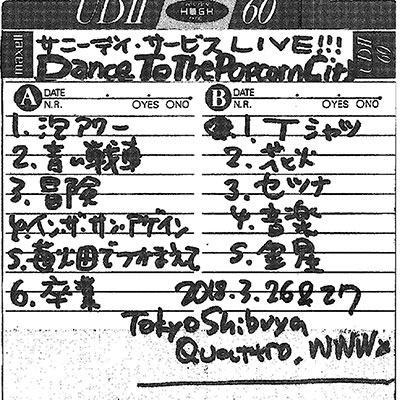 UDII HIGH 60
maxell
UDII 60
サニーデイ・サービス LIVE!!!
Dance To The Popcorn City
A DATE . .
N.R. OYES ONO
1. 泡アワー
2. 青い戦車
3. 冒険
4. イン・ザ・サン・アゲイン
5. 苺畑でつかまえて
6. 卒業
B DATE . .
N.R. OYES ONO
1. Tシャツ
2. 花火
3. セツナ
4. 音楽
5. 金星
2018.3.26&27
Tokyo Shibuya
Quattro, WWWx